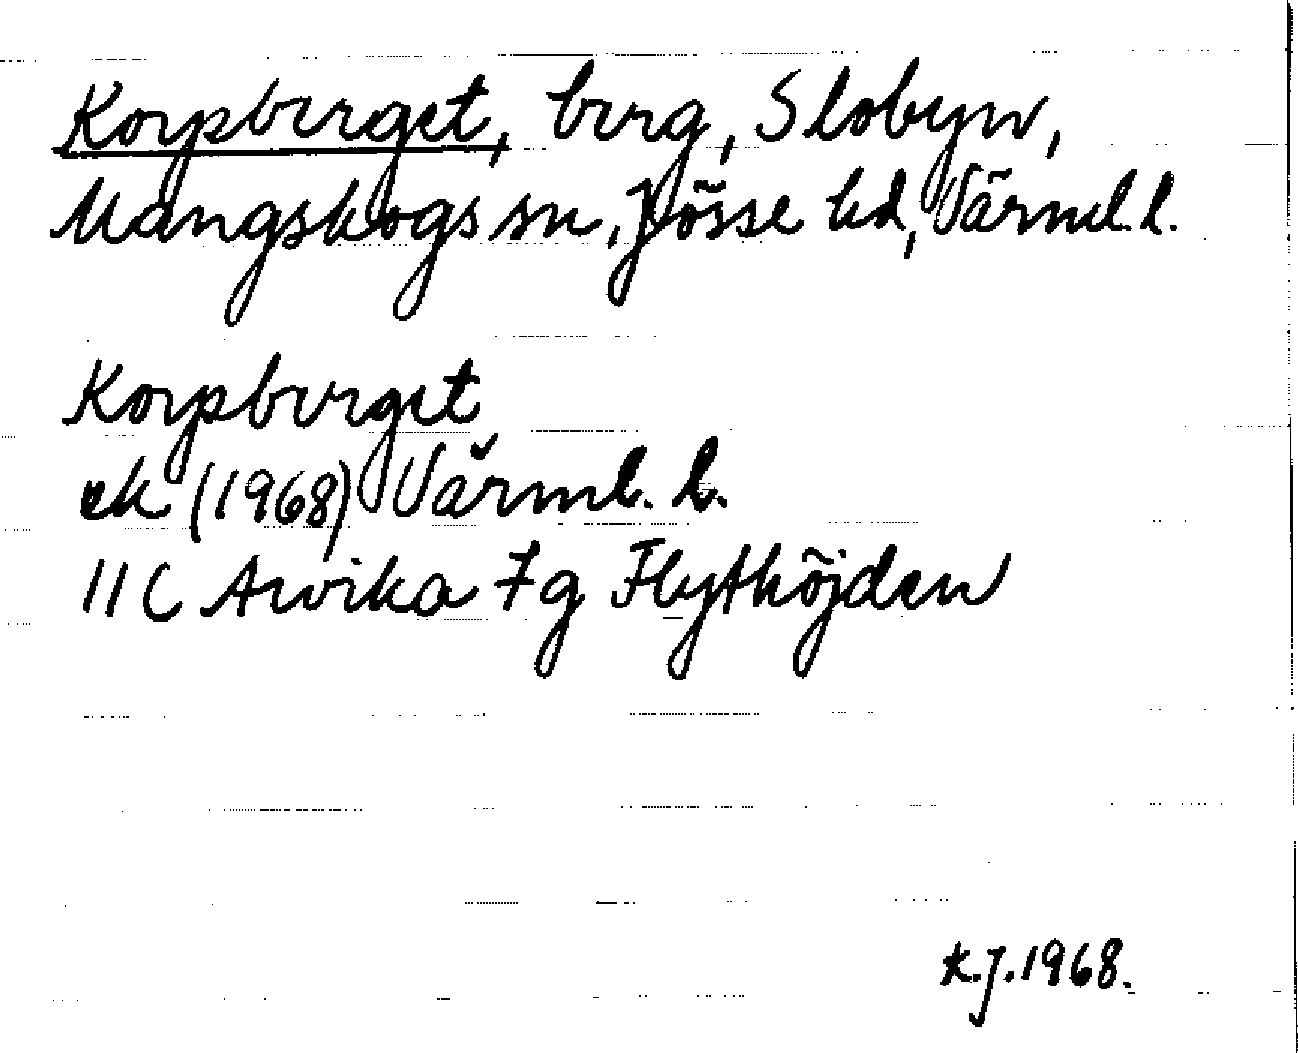 Korpberget, berg, Slobyn,
Mangskogs sn, Jösse hd, Värml. l.
Korpberget
ek (1968) Värml. l.
11 C Arvika 7 g Flythöjden
K.J. 1968.